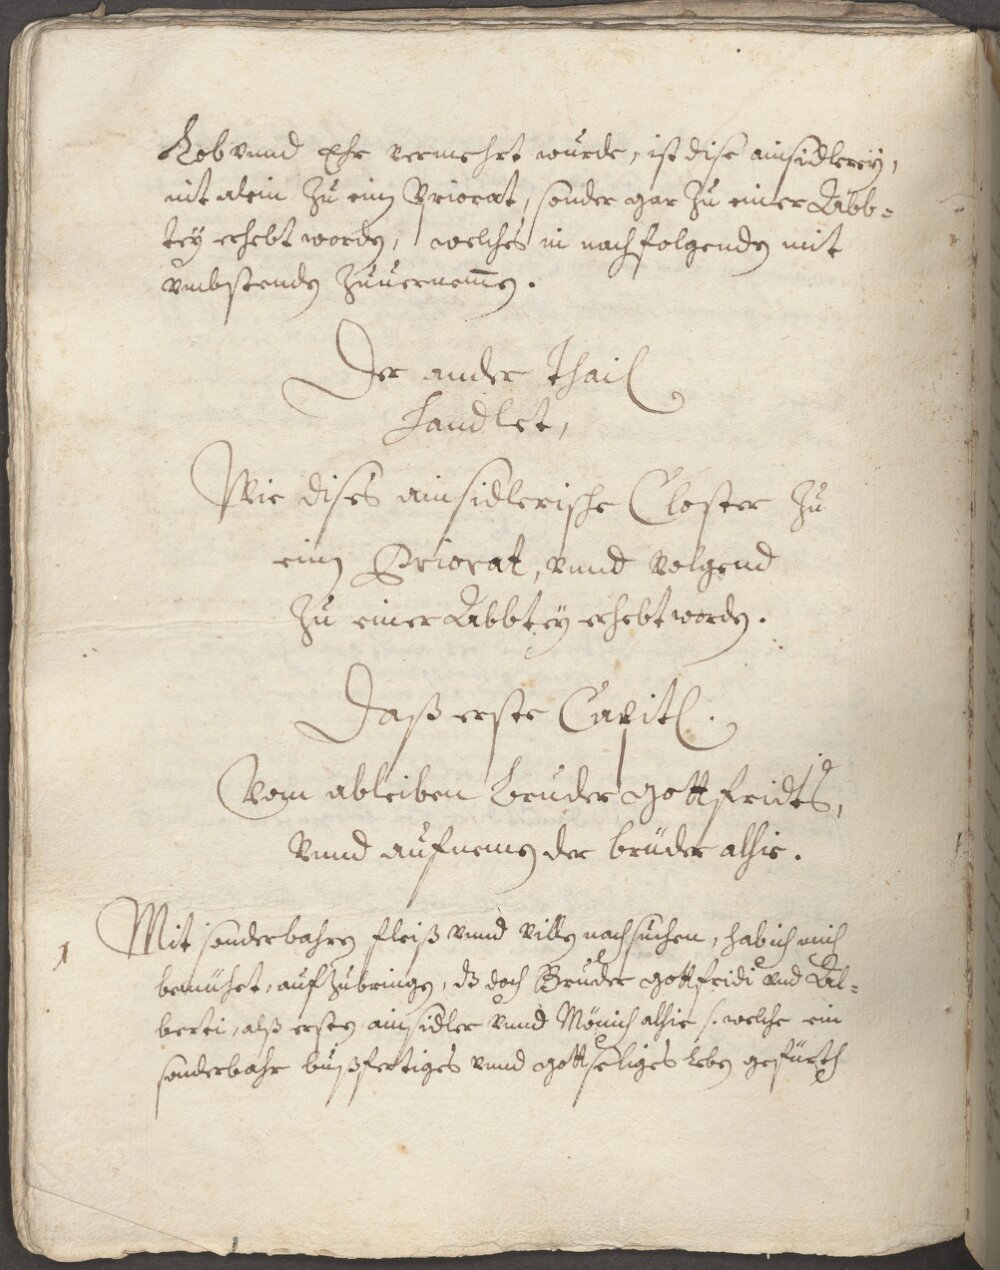 Lob vnnd Ehr vermehrt wurde, ist dise ainsidlerey,
nit alein zu eim Priorat, sonder gar zu einer Abb=
tey erhebt worden, welches in nachfolgenden mit
vmbstenden zuuernemen.
Der ander Thail
handlet,
Wie dises ainsidlerische Closter zu
eim Priorat, vnnd volgend
zu einer Abbtey erhebt worden.
Daß erste Capitl.
Vom ableiben bruder Gottfridts,
vnnd aufnemen der brüder alhie.
1 Mit sonderbahren fleiß vnnd villen nachsuchen, hab ich mich
bemühet, auf zubringen, dz doch Bruder Gottfridi vnd Al=
berti, alß ersten ainsidler vnnd Mönich alhie /: welche ein
sonderbahr bußfertiges vnnd gottseliges leben gefürth